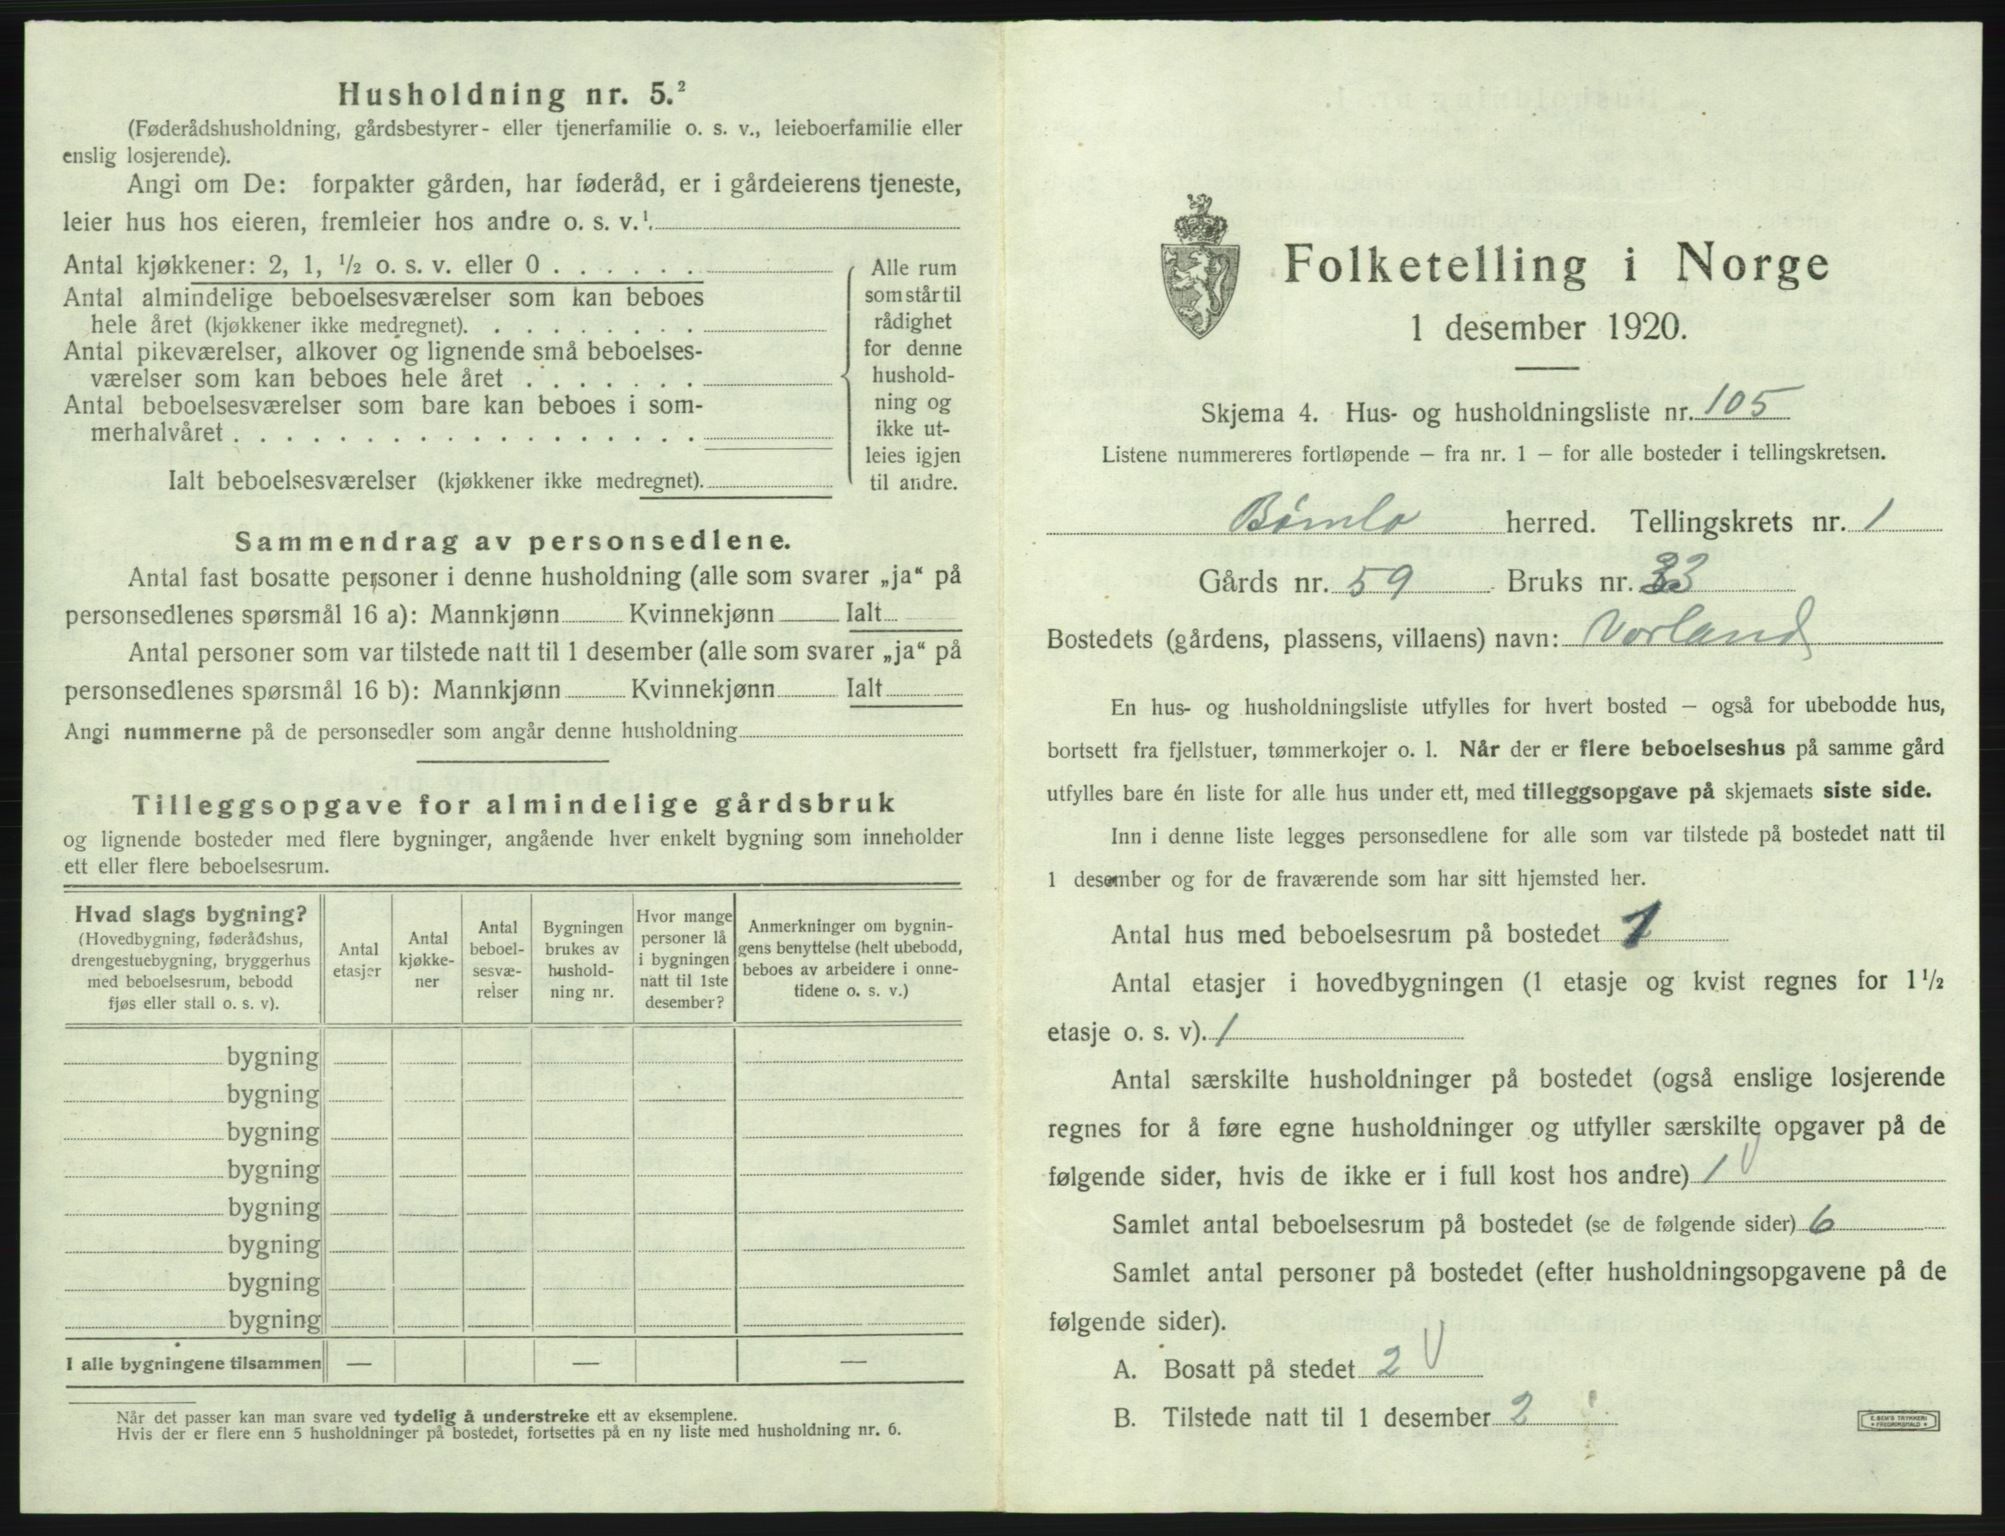 Husholdning nr. 5.²
(Føderådshusholdning, gårdsbestyrer- eller tjenerfamilie o. s. v., leieboerfamilie eller
enslig losjerende).
Angi om De: forpakter gården, har føderåd, er i gårdeierens tjeneste,
leier hus hos eieren, fremleier hos andre o. s. v.¹.
Antal kjøkkener: 2, 1, ½ o. s. v. eller 0 . . . . . .
Antal almindelige beboelsesværelser som kan beboes
hele året (kjøkkener ikke medregnet). . . . . . . . .
Antal pikeværelser, alkover og lignende små beboelses-
værelser som kan beboes hele året . . . . . . .
Antal beboelsesværelser som bare kan beboes i som-
merhalvåret . . . . . . . . . . . . . . . . . .
Ialt beboelsesværelser (kjøkkener ikke medregnet).
Alle rum
som står til
rådighet
for denne
hushold-
ning og
ikke ut-
leies igjen
til andre.
Sammendrag av personsedlene.
Antal fast bosatte personer i denne husholdning (alle som svarer „ja“ på
personsedlenes spørsmål 16 a): Mannkjønn Kvinnekjønn Ialt
Antal personer som var tilstede natt til 1 desember (alle som svarer „ja“ på
personsedlenes spørsmål 16 b): Mannkjønn Kvinnekjønn Ialt
Angi nummerne på de personsedler som angår denne husholdning
Tilleggsopgave for almindelige gårdsbruk
og lignende bosteder med flere bygninger, angående hver enkelt bygning som inneholder
ett eller flere beboelsesrum.
Hvad slags bygning?
(Hovedbygning, føderådshus,
drengestuebygning, bryggerhus
med beboelsesrum, bebodd
fjøs eller stall o. s. v).
Antal
etasjer
Antal
kjøkke-
ner
Antal
beboel-
sesvæ-
relser
Bygningen
brukes av
hushold-
ning nr.
Hvor mange
personer lå
i bygningen
natt til 1ste
desember?
Anmerkninger om bygnin-
gens benyttelse (helt ubebodd,
beboes av arbeidere i onne-
tidene o. s. v.)
bygning
bygning
bygning
bygning
bygning
bygning
bygning
bygning
I alle bygningene tilsammen — — —
Når det passer kan man svare ved tydelig å understreke ett av eksemplene.
Hvis der er flere enn 5 husholdninger på bostedet, fortsettes på en ny liste med husholdning nr. 6.
Folketelling i Norge
1 desember 1920.
Skjema 4. Hus- og husholdningsliste nr. 105
Listene nummereres fortløpende – fra nr. 1 – for alle bosteder i tellingskretsen.
Bømlo herred. Tellingskrets nr. 1
Gårds nr. 59 Bruks nr. 33
Bostedets (gårdens, plassens, villaens) navn: Vorland
En hus- og husholdningsliste utfylles for hvert bosted – også for ubebodde hus,
bortsett fra fjellstuer, tømmerkojer o. l. Når der er flere beboelseshus på samme gård
utfylles bare én liste for alle hus under ett, med tilleggsopgave på skjemaets siste side.
Inn i denne liste legges personsedlene for alle som var tilstede på bostedet natt til
1 desember og for de fraværende som har sitt hjemsted her.
Antal hus med beboelsesrum på bostedet 1
Antal etasjer i hovedbygningen (1 etasje og kvist regnes for 1½
etasje o. s. v). 1
Antal særskilte husholdninger på bostedet (også enslige losjerende
regnes for å føre egne husholdninger og utfyller særskilte opgaver på de
følgende sider, hvis de ikke er i full kost hos andre) 1
Samlet antal beboelsesrum på bostedet (se de følgende sider) 6
Samlet antal personer på bostedet (efter husholdningsopgavene på de
følgende sider).
A. Bosatt på stedet 2
B. Tilstede natt til 1 desember 2
E. SEM'S TRYKKERI
FREDRIKSHALD